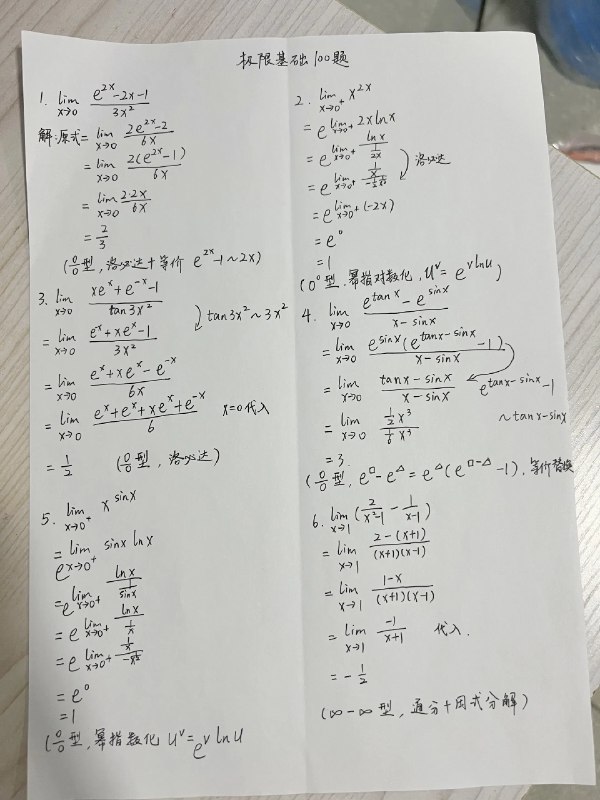 极限基础100题
1. lim x→0 (e^{2x}-2x-1)/(3x²)
解:原式= lim x→0 (2e^{2x}-2)/(6x)
= lim x→0 2(e^{2x}-1)/(6x)
= lim x→0 (2·2x)/(6x)
= 2/3
(0/0型, 洛必达+等价 e^{2x}-1~2x)
2. lim x→0⁺ x^{2x}
= e^{lim x→0⁺ 2x lnx}
= e^{lim x→0⁺ lnx/(1/2x)}
= e^{lim x→0⁺ (1/x)/(-1/2x²)} 洛必达
= e^{lim x→0⁺ (-2x)}
= e⁰
= 1
(0⁰型, 幂指对数化, u^v = e^{v lnu})
3. lim x→0 (xe^x+e^{-x}-1)/(tan3x²)
= lim x→0 (e^x+xe^x-1)/(3x²) tan3x²~3x²
= lim x→0 (e^x+xe^x-e^{-x})/(6x)
= lim x→0 (e^x+e^x+xe^x+e^{-x})/6 x=0代入
= 1/2 (0/0型, 洛必达)
4. lim x→0 (e^{tanx}-e^{sinx})/(x-sinx)
= lim x→0 e^{sinx}(e^{tanx-sinx}-1)/(x-sinx)
= lim x→0 (tanx-sinx)/(x-sinx) e^{tanx-sinx}-1
= lim x→0 (1/2 x³)/(1/6 x³) ~tanx-sinx
= 3.
(0/0型, e^□-e^△=e^△(e^{□-△}-1), 等价替换
5. lim x→0⁺ x^{sinx}
= e^{lim x→0⁺ sinx lnx}
= e^{lim x→0⁺ lnx/(1/sinx)}
= e^{lim x→0⁺ lnx/(1/x)}
= e^{lim x→0⁺ (1/x)/(-x²)}
= e⁰
= 1
(0/0型, 幂指数化 u^v = e^{v lnu}
6. lim x→1 (2/(x²-1) - 1/(x-1))
= lim x→1 (2-(x+1))/((x+1)(x-1))
= lim x→1 (1-x)/((x+1)(x-1))
= lim x→1 -1/(x+1) 代入.
= -1/2
(∞-∞型, 通分+因式分解)